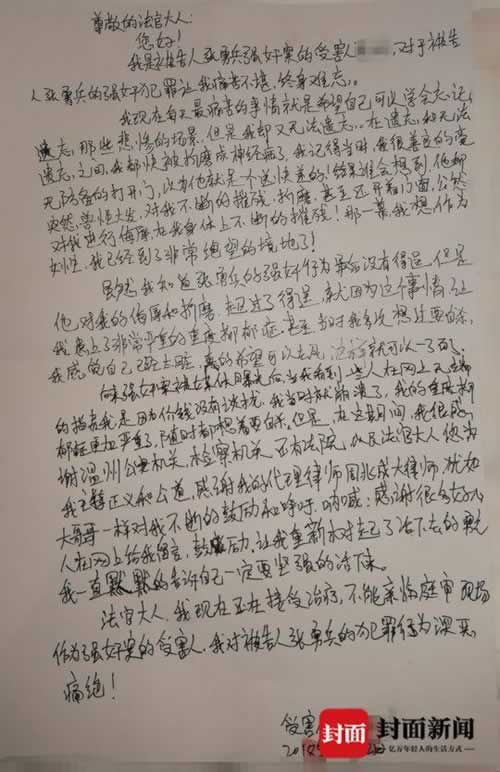 尊敬的法官大人:
您好!
我是被告人张勇兵强奸案的受害人 对于被告
人张勇兵的强奸犯罪让我痛苦不堪,终身难忘。
我现在每天最痛苦的事情就是希望自己可以学会忘记,
遗忘,那些悲惨的场景。但是我却又无法遗忘。在遗忘和无法
遗忘之间,我都快被折磨成神经病了,我记得当时,我很善良的毫
无防备的打开门,以为他就是一个送快递的!结果谁会想到他却
突然兽性大发,对我不断的摧残,折磨,甚至还开着门面,公然
对我进行侮辱,在我身体上不断的摧残!那一幕,我想,作为
女性,我已经到了非常绝望的境地了!
虽然我知道张勇兵的强奸行为最后没有得逞,但是
他对我的侮辱和折磨,超过了得逞,就因为这个事情让
我患上了非常严重的重度抑郁症,甚至当时我多次想过要自杀,
我感觉自己已经死去,真的希望可以去死,这样就可以一了百了。
强奸案被媒体曝光后,当我看到些人在网上无端
的指责我是因为价钱没有谈拢,我当时就崩溃了,我的重度抑
郁症更加严重了,随时都想着要自杀。但是,在这期间,我很感
谢温州公安机关,检察机关,还有法院,以及法官大人您为
我主持正义和公道,感谢我的代理律师周兆成大律师,犹如
大哥哥一样对我不断的鼓励和呼吁,呐喊;感谢很多好心
人在网上给我留言,鼓励,让我重新对起了活下去的勇
我一直默默的告诉自己一定要坚强的活下来。
法官大人,我现在正在接受治疗,不能亲临庭审现场
作为强奸案的受害人,我对被告人张勇兵的犯罪行为深恶
痛绝!
受害人
封面 封面新闻
亿万年轻人的生活方式